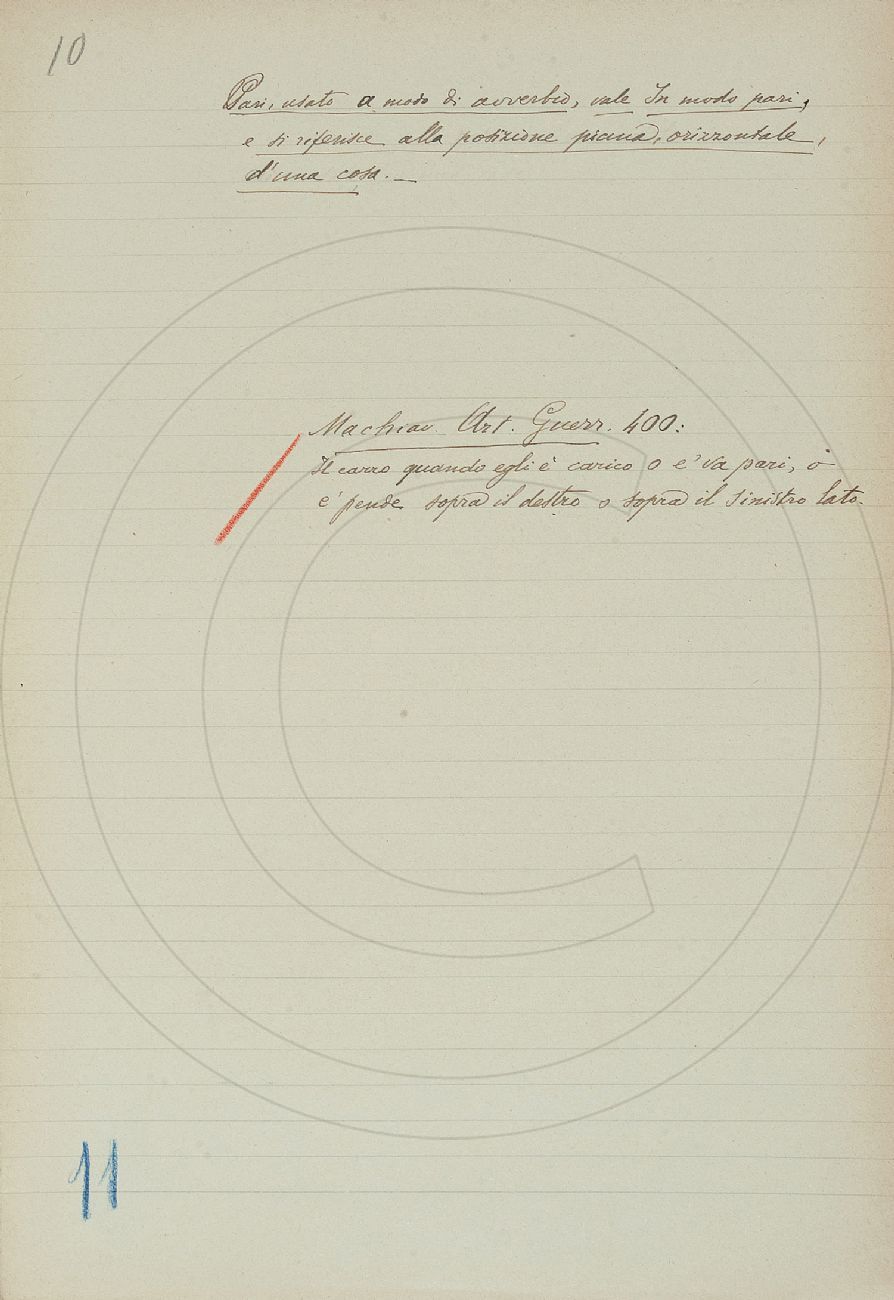 10
Pari, usato a modo di avverbio, vale In modo pari,
e si riferisce alla posizione piana, orizzontale,
d'una cosa. —
Machiav. Art. Guerr. 400:
Il carro quando egli è carico o e' va pari, o
e' pende sopra il destro o sopra il sinistro lato.
11